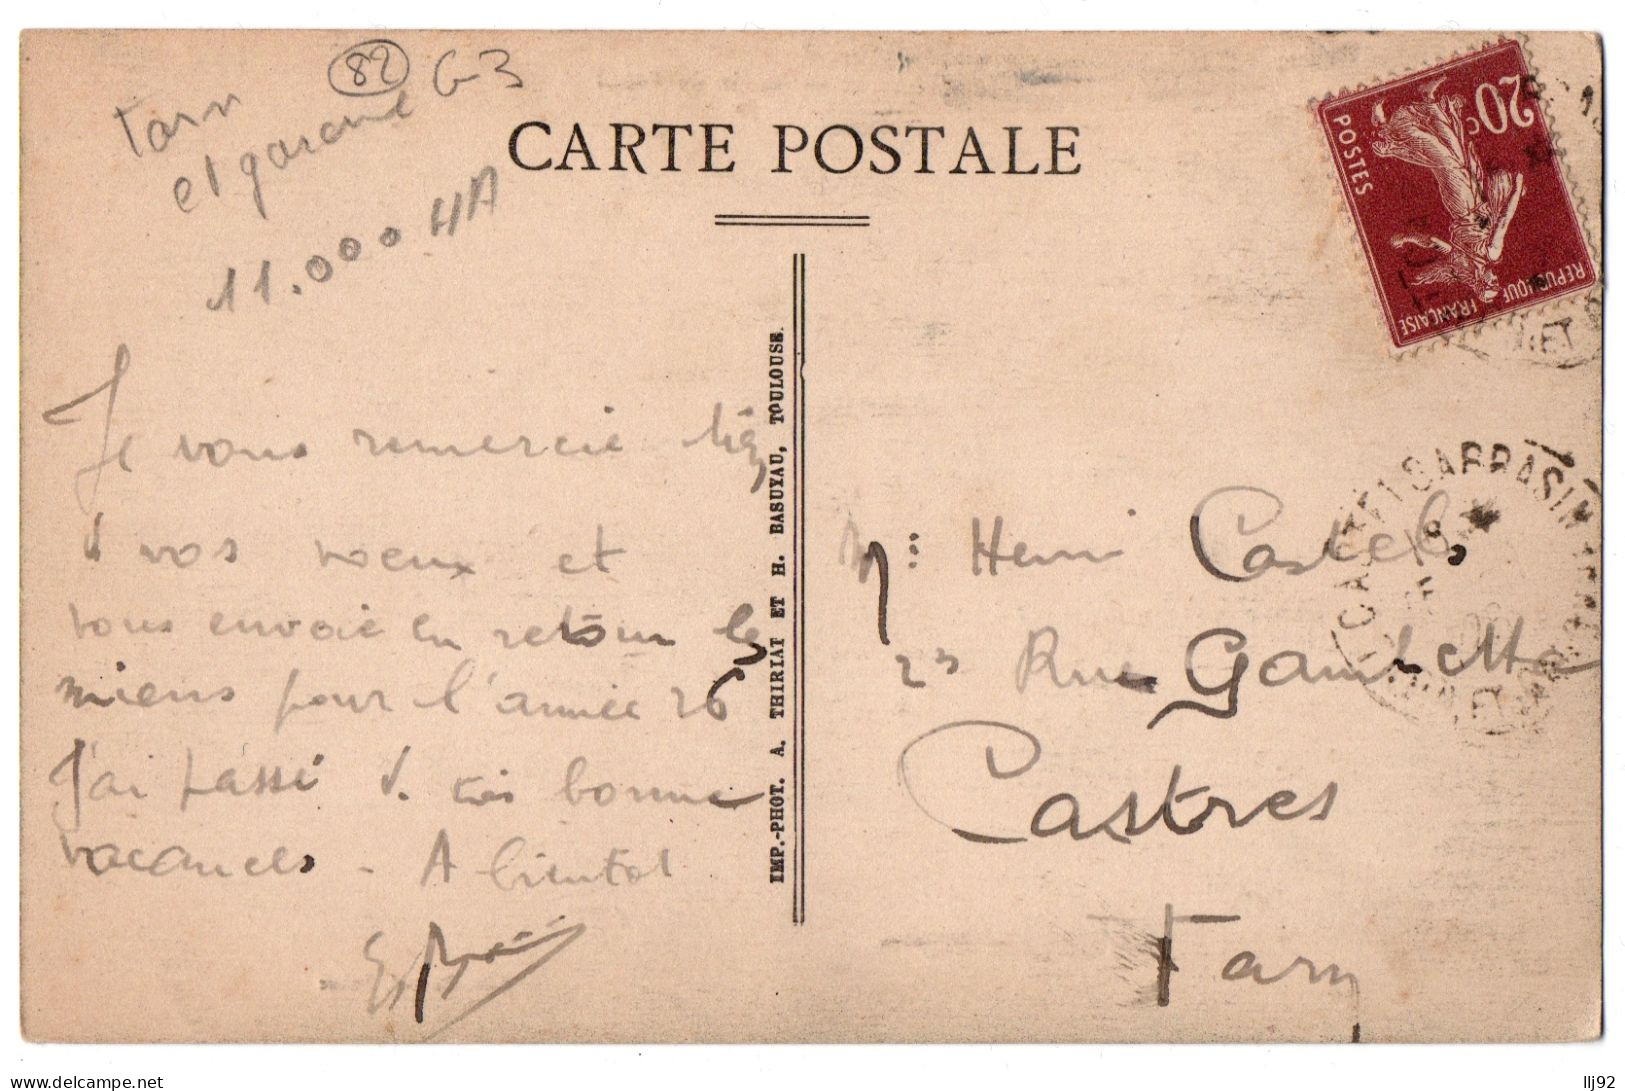 82 G-3
Tarn
et garonne
11.000 HA
CARTE POSTALE
20c
POSTES
REPUBLIQUE
FRANÇAISE
Je vous remercie bien
d vos voeux et
vous envoie en retour les
miens pour l'année 26
J'ai passé d. très bonnes
vacances - A bientot
IMP.-PHOT. A. THIRIAT ET H. BASUYAU, TOULOUSE.
CASTELSARRASIN
TARN-ET-GARONNE
Henri Castels
23 Rue Gambetta
Castres
Tarn
llj92